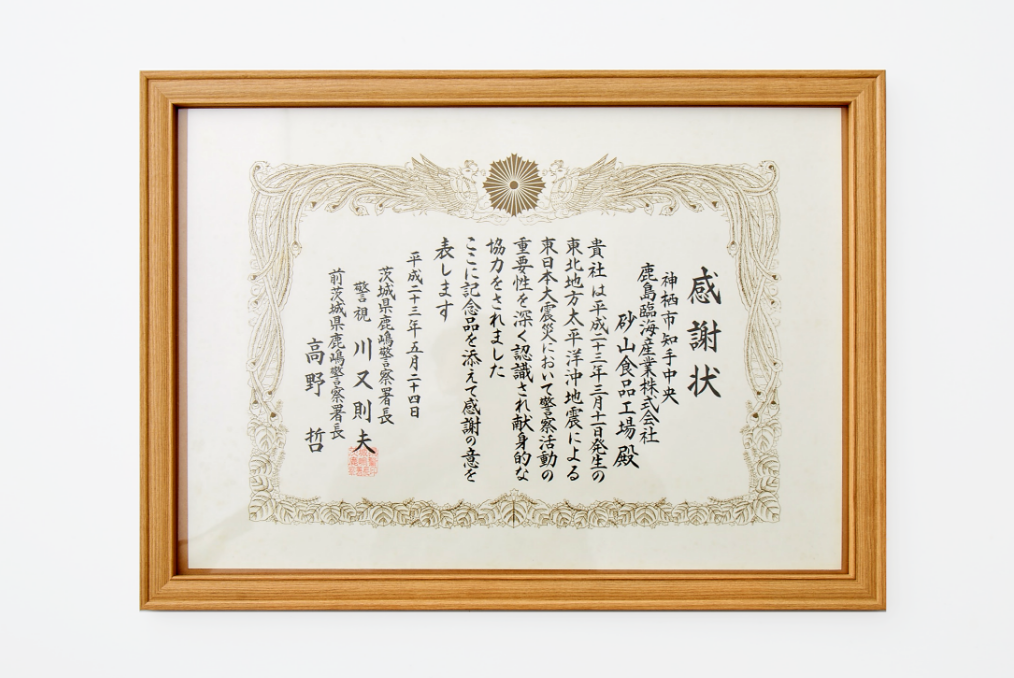 感謝状
神栖市知手中央
鹿島臨海産業株式会社
砂山食品工場殿
貴社は平成二十三年三月十一日発生の
東北地方太平洋沖地震による
東日本大震災において警察活動の
重要性を深く認識され献身的な
協力をされました
ここに記念品を添えて感謝の意を
表します
平成二十三年五月二十四日
茨城県鹿嶋警察署長
警視 川又則夫
前茨城県鹿嶋警察署長
高野 哲